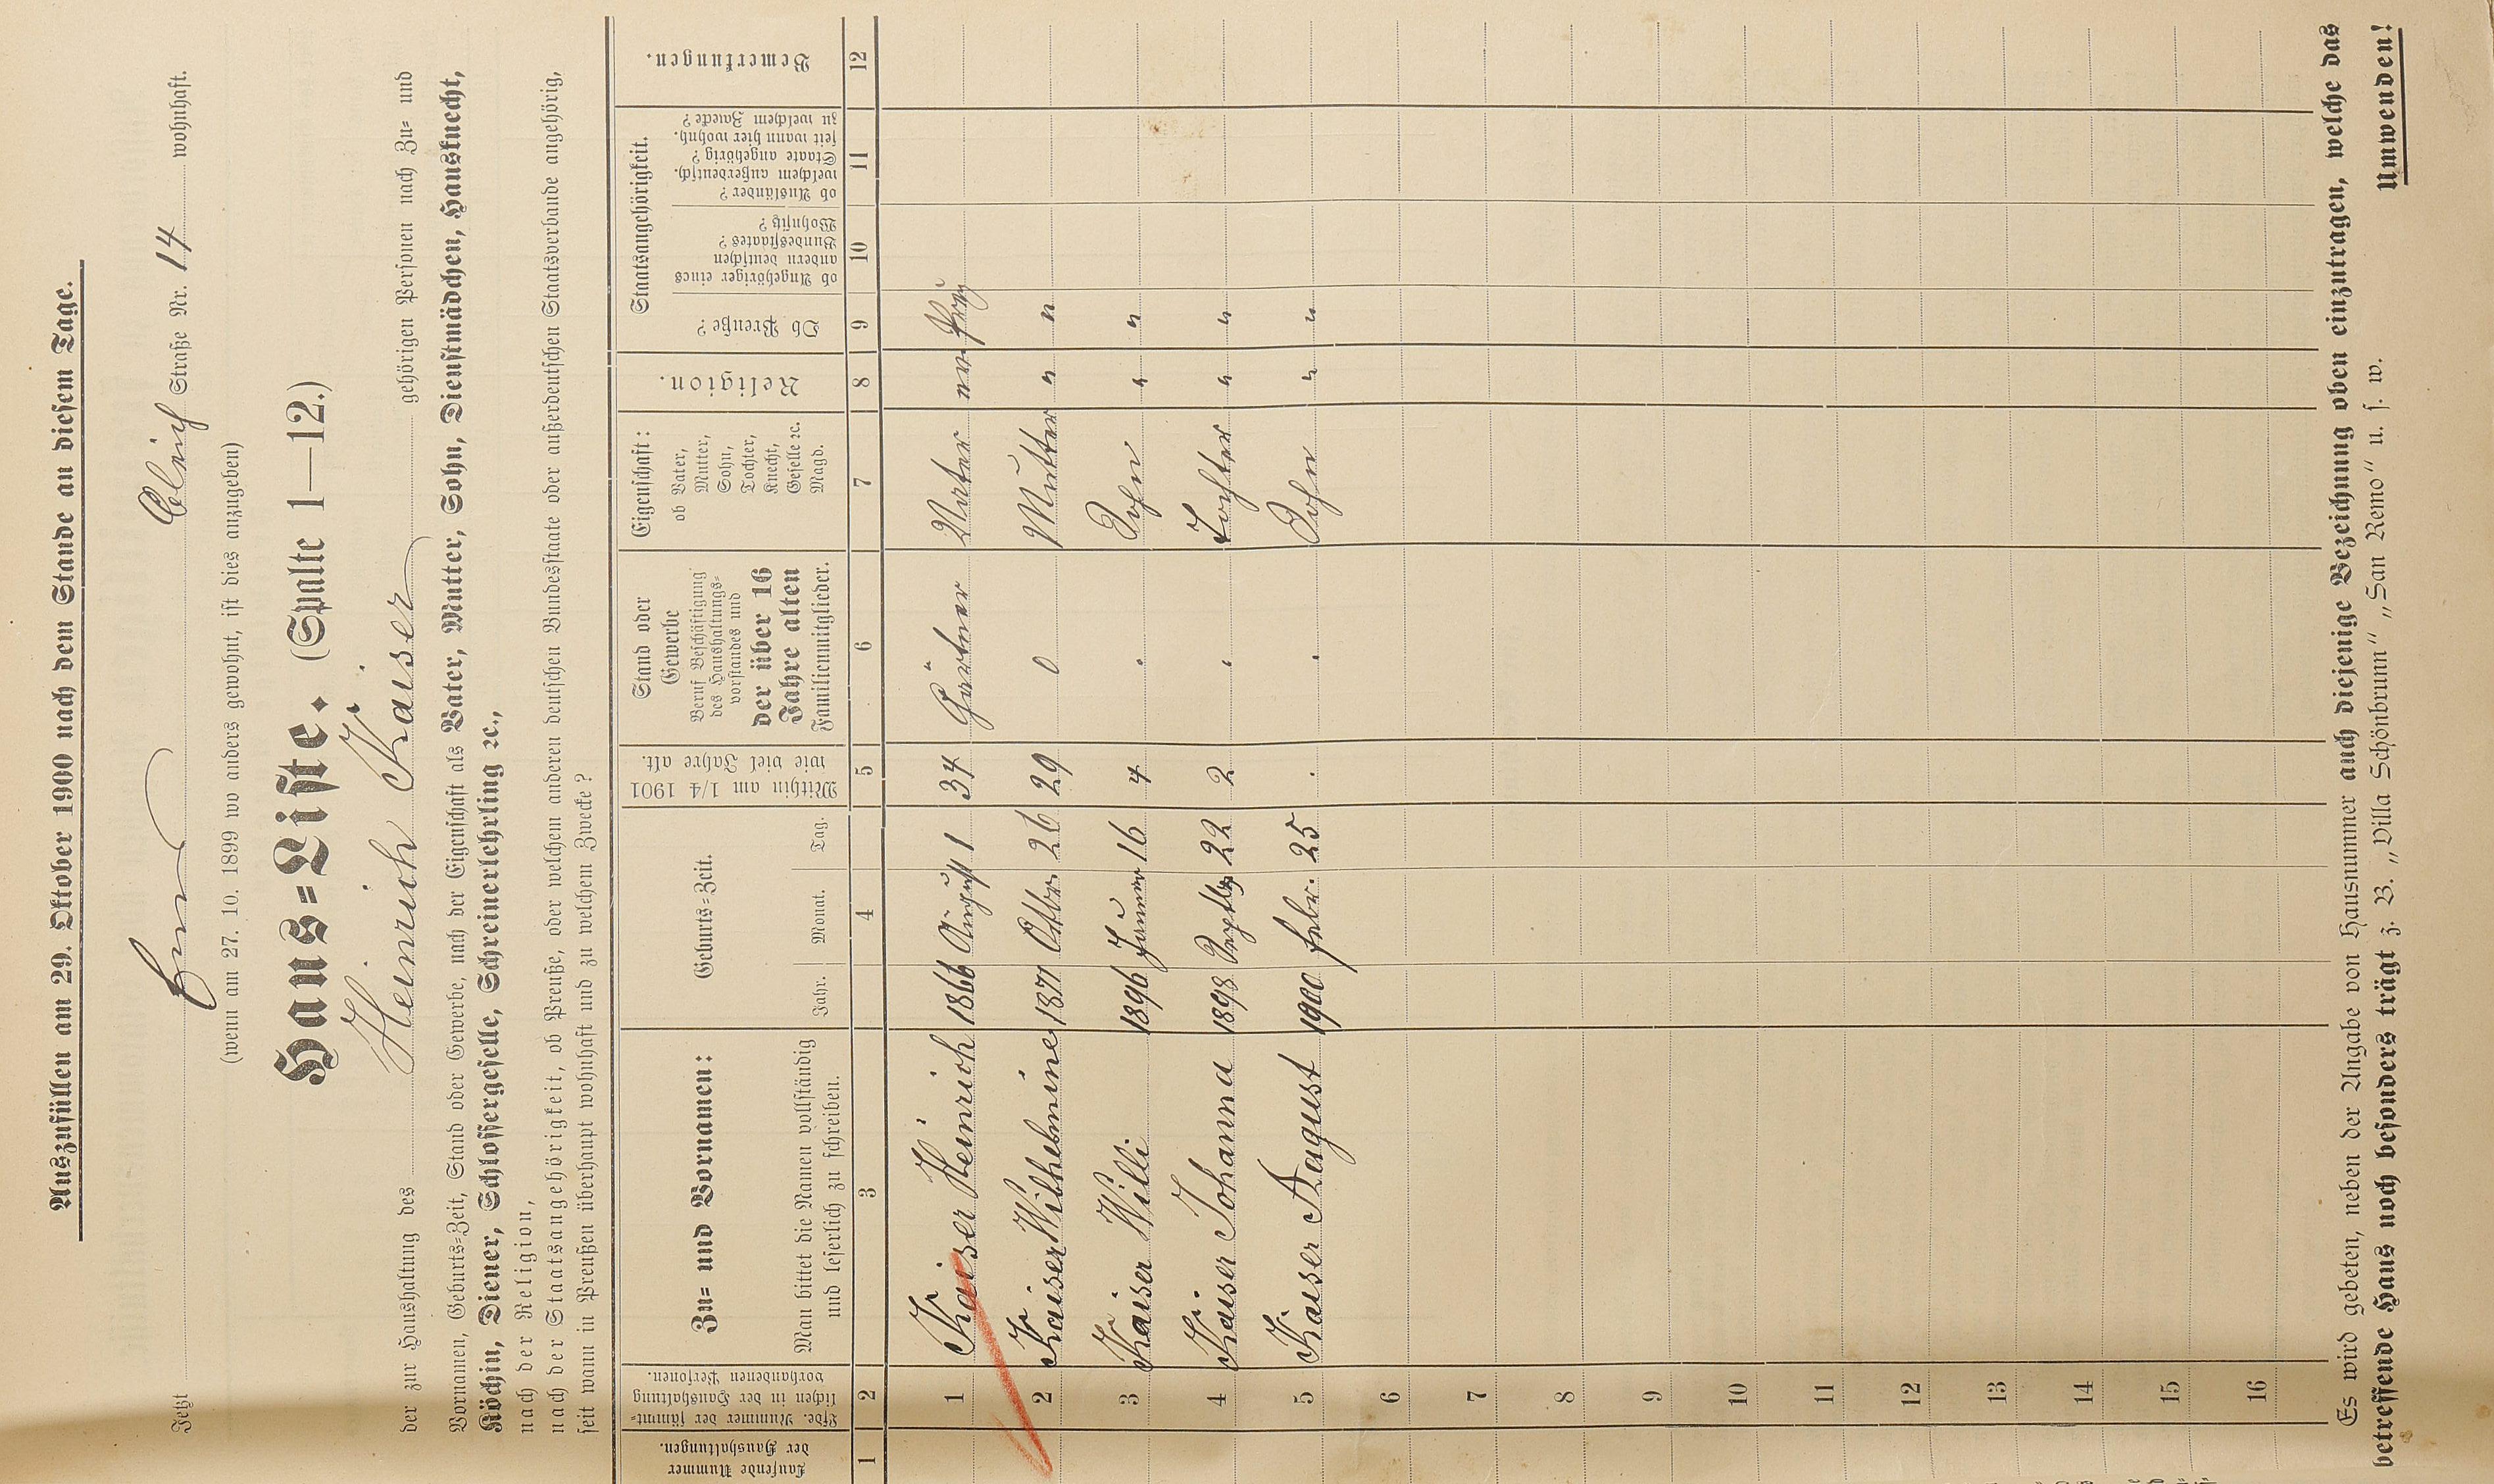 Auszufüllen am 29. Oktober 1900 nach dem Stande an diesem Tage.
Jetzt Straße Nr. 14 wohnhaft.
(wenn am 27. 10. 1899 wo anders gewohnt, ist dies anzugeben)
Haus=Liste. (Spalte 1—12.)
der zur Haushaltung des Heinrich Kaiser gehörigen Personen nach Zu= und
Vornamen, Geburts=Zeit, Stand oder Gewerbe, nach der Eigenschaft als Vater, Mutter, Sohn, Dienstmädchen, Hausknecht,
Köchin, Diener, Schlossergeselle, Schreinerlehrling ꝛc.,
nach der Religion,
nach der Staatsangehörigkeit, ob Preuße, oder welchem anderen deutschen Bundesstaate oder außerdeutschen Staatsverbande angehörig,
seit wann in Preußen überhaupt wohnhaft und zu welchem Zwecke?
Laufende Nummer der Haushaltungen.
Lfde. Nummer der sämmt=lichen in der Haushaltung vorhandenen Personen.
Zu= und Vornamen:
Man bittet die Namen vollständig
und leserlich zu schreiben.
Geburts=Zeit.
Jahr. Monat. Tag.
Mithin am 1/4 1901
wie viel Jahre alt.
Stand oder
Gewerbe
Beruf Beschäftigung
des Haushaltungs=
vorstandes und
der über 16
Jahre alten
Familienmitglieder.
Eigenschaft:
ob Vater,
Mutter,
Sohn,
Tochter,
Knecht,
Geselle ꝛc.
Magd.
Religion.
Staatsangehörigkeit.
Ob Preuße?
ob Angehöriger eines
andern deutschen
Bundesstaates?
Wohnsitz?
ob Ausländer?
welchem außerdeutsch.
Staate angehörig?
seit wann hier wohnh.
zu welchem Zwecke?
Bemerkungen.
1 2 3 4 5 6 7 8 9 10 11 12
1 Kaiser Heinrich 1866 August 1 34 Gärtner Vater
2 Kaiser Wilhelmine 1871 Oktbr. 26 29 0 Mutter " "
3 Kaiser Willi 1896 Januar 16 4 . Sohn " "
4 Kaiser Johanna 1898 Septbr 22 2 . Tochter " "
5 Kaiser August 1900 febr. 25 . . Sohn " "
6
7
8
9
10
11
12
13
14
15
16
Es wird gebeten, neben der Angabe von Hausnummer auch diejenige Bezeichnung oben einzutragen, welche das
betreffende Haus noch besonders trägt z. B. „Villa Schönbrunn" „San Remo" u. s. w.
Umwenden!